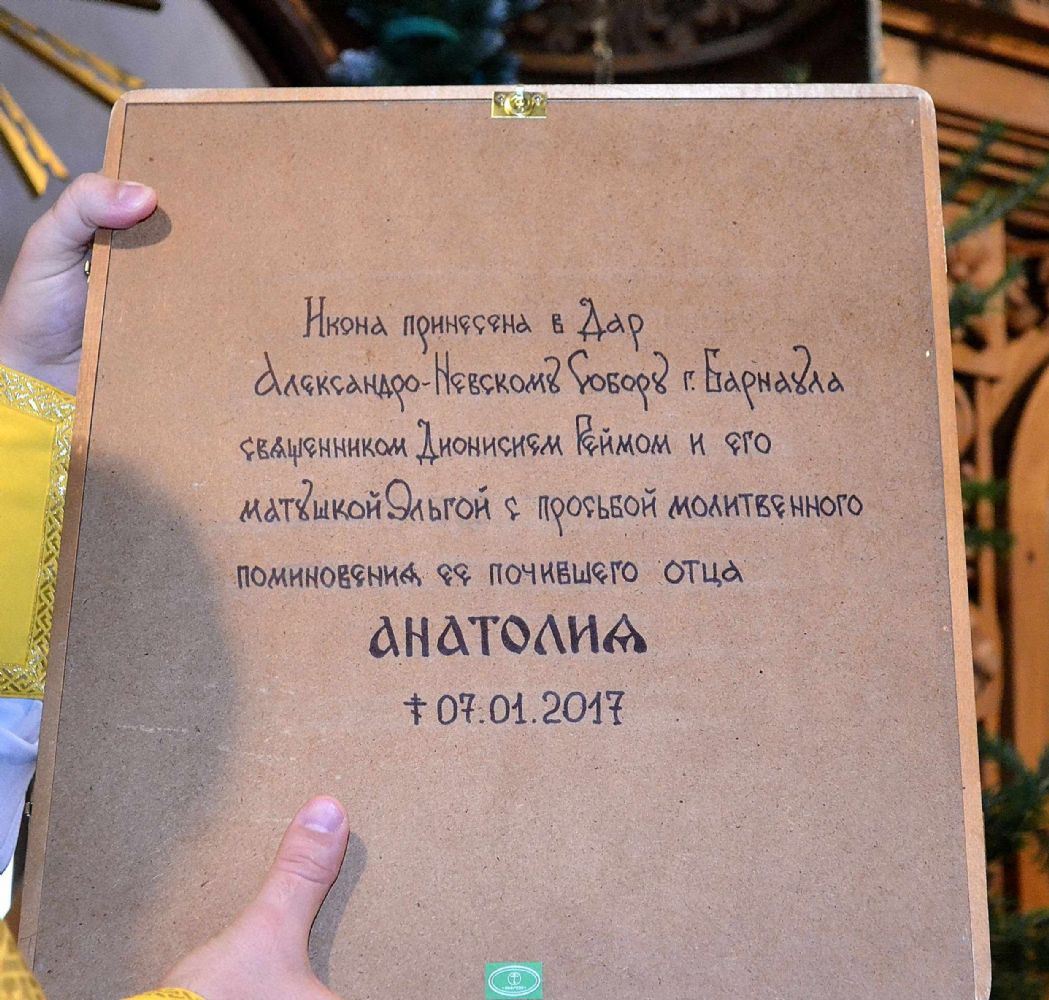 Икона принесена в Дар
Александро-Невскомꙋ Соборꙋ г. Барнаꙋла
свѧщенником Дионисием Реймом и его
матꙋшкой Ольгой с просьбой молитвенного
поминовениѧ ее почившего отца
АНАТОЛИѦ
☦ 07.01.2017